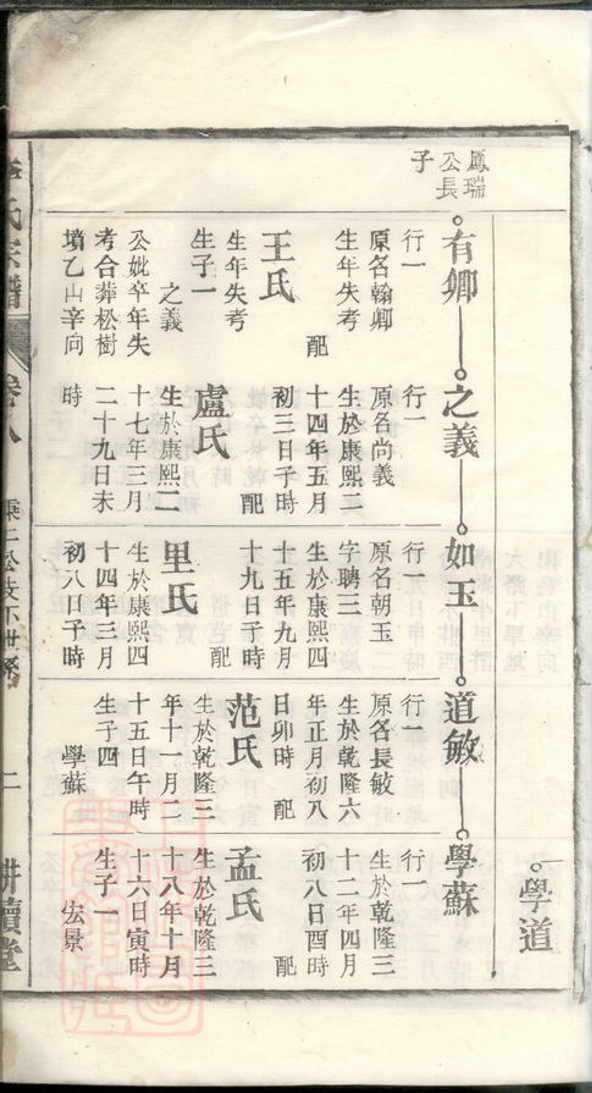 學道
鳳瑞
公長
子
有卿
行一
原名翰卿
生年失考
配
王氏
生年失考
生子一
之義
公妣卒年失
考合葬松樹
墳乙山辛向
之義
行一
原名尚義
生於康熙二
十四年五月
初三日子時
配
盧氏
生於康熙二
十七年三月
二十九日未
時
如玉
行一
原名朝玉
字聘三
生於康熙四
十五年九月
十九日子時
配
里氏
生於康熙四
十四年三月
初八日子時
道敏
行一
原名長敏
生於乾隆六
年正月初八
日卯時 配
范氏
生於乾隆三
年十一月二
十五日午時
生子四
學蘇
學蘇
行一
生於乾隆三
十二年四月
初八日酉時
配
孟氏
生於乾隆三
十八年十月
十六日寅時
生子一
宏景
氏宗譜
卷八
二公支下世系
二
耕讀堂